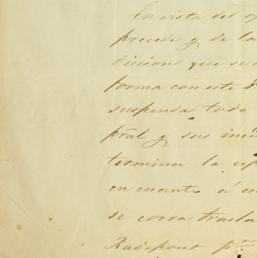 En vista del
precede y de la
dicion que se
forma con este
suspenda todo
pral y sus inci
termina la
en cuanto á
se corra trasla
Radepont pr